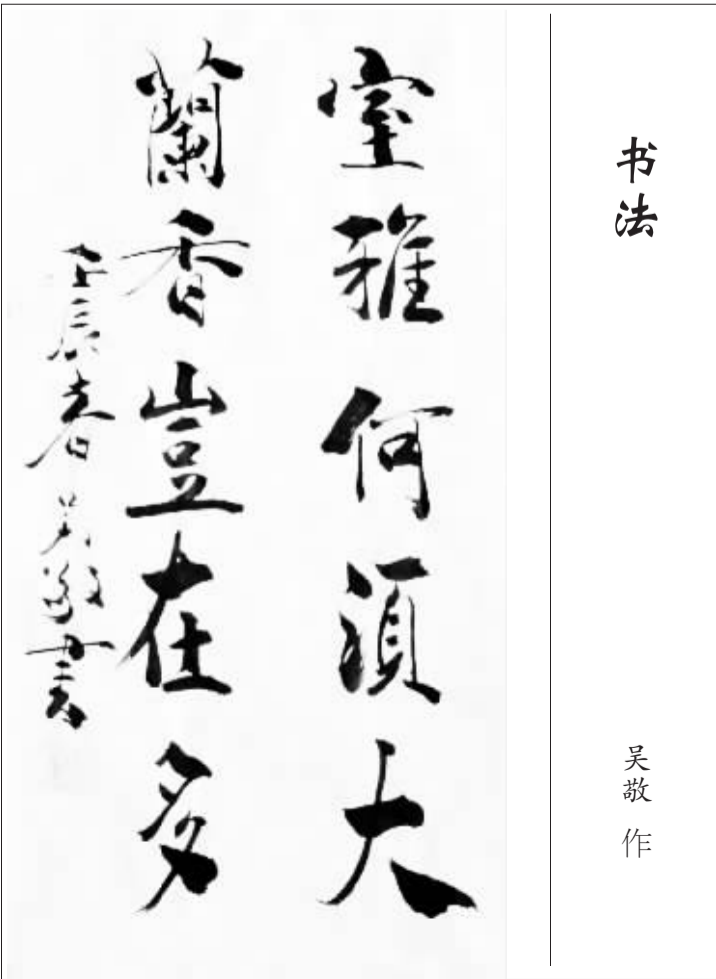 书法
吴敬 作
室雅何須大
蘭香豈在多
壬辰春吴敬書